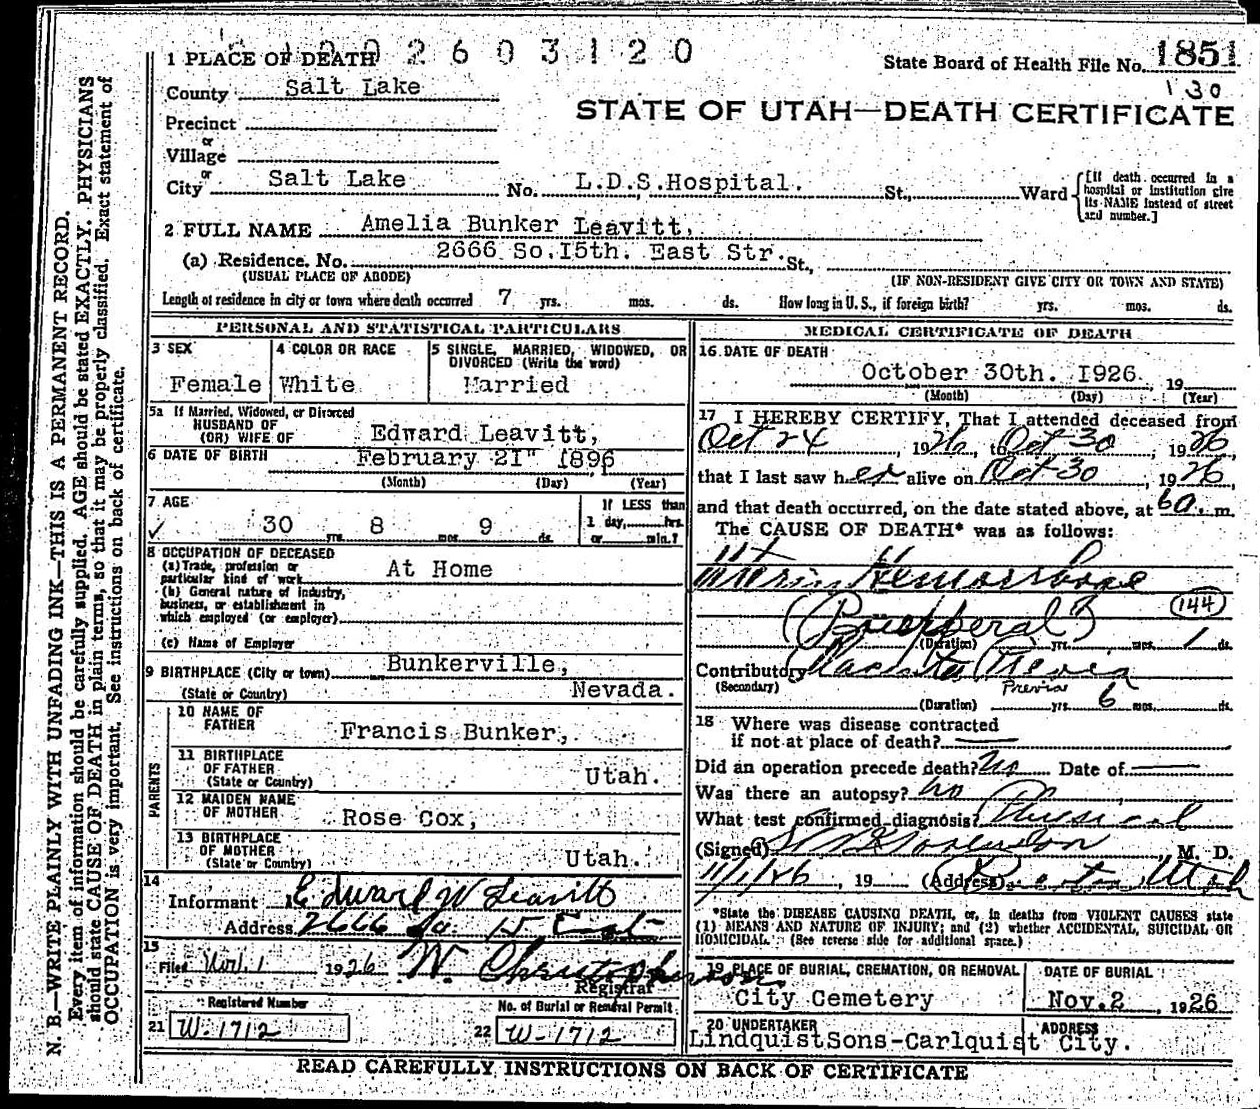 8 1 0 0 2 6 0 3 1 2 0
1 PLACE OF DEATH
State Board of Health File No. 1851
130
County Salt Lake
STATE OF UTAH—DEATH CERTIFICATE
Precinct
or
Village
or
City Salt Lake No. L.D.S.Hospital. St., Ward
[If death occurred in a hospital or institution give its NAME instead of street and number.]
2 FULL NAME Amelia Bunker Leavitt,
(a) Residence. No. 2666 So.I5th. East Str. St.,
(USUAL PLACE OF ABODE) (IF NON-RESIDENT GIVE CITY OR TOWN AND STATE)
Length of residence in city or town where death occurred 7 yrs. mos. ds. How long in U. S., if foreign birth? yrs. mos. ds.
PERSONAL AND STATISTICAL PARTICULARS
3 SEX 4 COLOR OR RACE 5 SINGLE, MARRIED, WIDOWED, OR DIVORCED (Write the word)
Female White Married
5a If Married, Widowed, or Divorced
HUSBAND OF
(OR) WIFE OF Edward Leavitt,
6 DATE OF BIRTH February 21" 1896
(Month) (Day) (Year)
7 AGE If LESS than
30 yrs. 8 mos. 9 ds. 1 day, hrs.
or min.?
8 OCCUPATION OF DECEASED
(a) Trade, profession or
particular kind of work At Home
(b) General nature of industry,
business, or establishment in
which employed (or employer)
(c) Name of Employer
9 BIRTHPLACE (City or town) Bunkerville,
(State or Country) Nevada.
PARENTS
10 NAME OF
FATHER Francis Bunker,
11 BIRTHPLACE
OF FATHER
(State or Country) Utah.
12 MAIDEN NAME
OF MOTHER Rose Cox,
13 BIRTHPLACE
OF MOTHER
(State or Country) Utah.
14
Informant Edward W Leavitt
Address 2666 So. 15 East
15
Filed Nov. 1 1926 W. Christopherson
Registrar
Registered Number No. of Burial or Removal Permit
21 W-1712 22 W-1712
MEDICAL CERTIFICATE OF DEATH
16 DATE OF DEATH
October 30th. I926 , 19
(Month) (Day) (Year)
17 I HEREBY CERTIFY, That I attended deceased from
Oct 24, 1926, to Oct 30, 1926
that I last saw her alive on Oct 30, 1926,
and that death occurred, on the date stated above, at 6a. m.
The CAUSE OF DEATH* was as follows:
Uterine Hemorrhage
(Puerperal) (144)
(Duration) yrs. mos. 1 ds.
Contributory Placenta Previa
(Secondary) Previa
(Duration) yrs. 6 mos. ds.
18 Where was disease contracted
if not at place of death? —
Did an operation precede death? No Date of —
Was there an autopsy? no
What test confirmed diagnosis? Physical
(Signed) M. D.
11/1/26, 19 (Address) Utah
*State the DISEASE CAUSING DEATH, or, in deaths from VIOLENT CAUSES state
(1) MEANS AND NATURE OF INJURY; and (2) whether ACCIDENTAL, SUICIDAL OR
HOMICIDAL. (See reverse side for additional space.)
19 PLACE OF BURIAL, CREMATION, OR REMOVAL DATE OF BURIAL
City Cemetery Nov.2 1926
20 UNDERTAKER ADDRESS
LindquistSons-Carlquist City.
READ CAREFULLY INSTRUCTIONS ON BACK OF CERTIFICATE
N. B.—WRITE PLAINLY WITH UNFADING INK—THIS IS A PERMANENT RECORD.
Every item of information should be carefully supplied. AGE should be stated EXACTLY. PHYSICIANS
should state CAUSE OF DEATH in plain terms, so that it may be properly classified. Exact statement of
OCCUPATION is very important. See instructions on back of certificate.